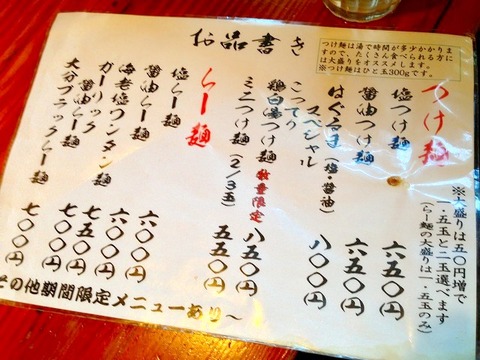 お品書き
つけ麺は湯で時間が多少かかりま
すので、たくさん食べられる方に
は大盛りをオススメします。
※つけ麺はひと玉300gです。
※大盛りは五〇円増で
一.五玉と二玉選べます
(らー麺の大盛りは一.五玉のみ)
つけ麺
塩つけ麺 六五〇円
醤油つけ麺 六五〇円
はぐるま(塩・醤油)
スペシャル 八〇〇円
こってり
鶏白湯つけ麺 数量限定 八五〇円
ミニつけ麺(2/3玉) 五五〇円
らー麺
塩らー麺 六〇〇円
醤油らー麺 六〇〇円
海老塩ワンタン麺 七五〇円
ガーリック
大分ブラックらー麺 七〇〇円
七〇〇円
その他期間限定メニューあり〜